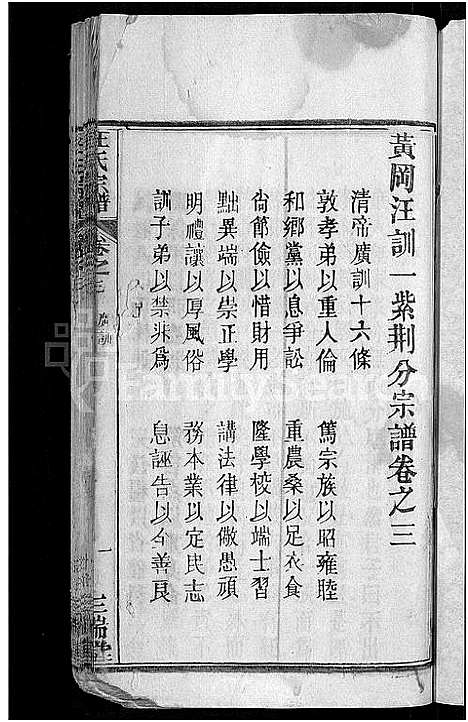 黃岡汪訓一紫荆分宗譜卷之三
清帝廣訓十六條
敦孝弟以重人倫　篤宗族以昭雍睦
和鄉黨以息爭訟　重農桑以足衣食
尙節儉以惜財用　隆學校以端士習
黜異端以崇正學　講法律以儆愚頑
明禮讓以厚風俗　務本業以定民志
訓子弟以禁非為　息誣告以全善良
汪氏宗譜
卷之三
廣訓
一
三瑞堂
FamilySearch